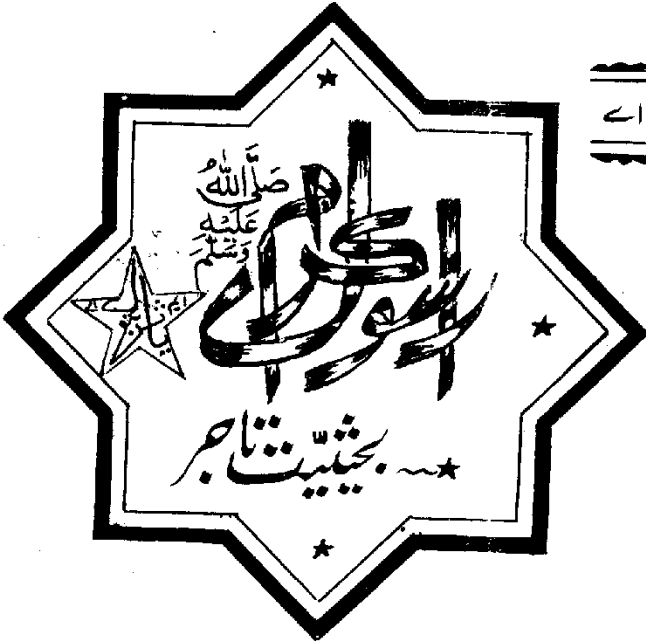 رسول اکرم
صَلَّی اللّٰہُ
عَلَیْہِ
وَسَلَّمَ
بحیثیّت تاجر
اے